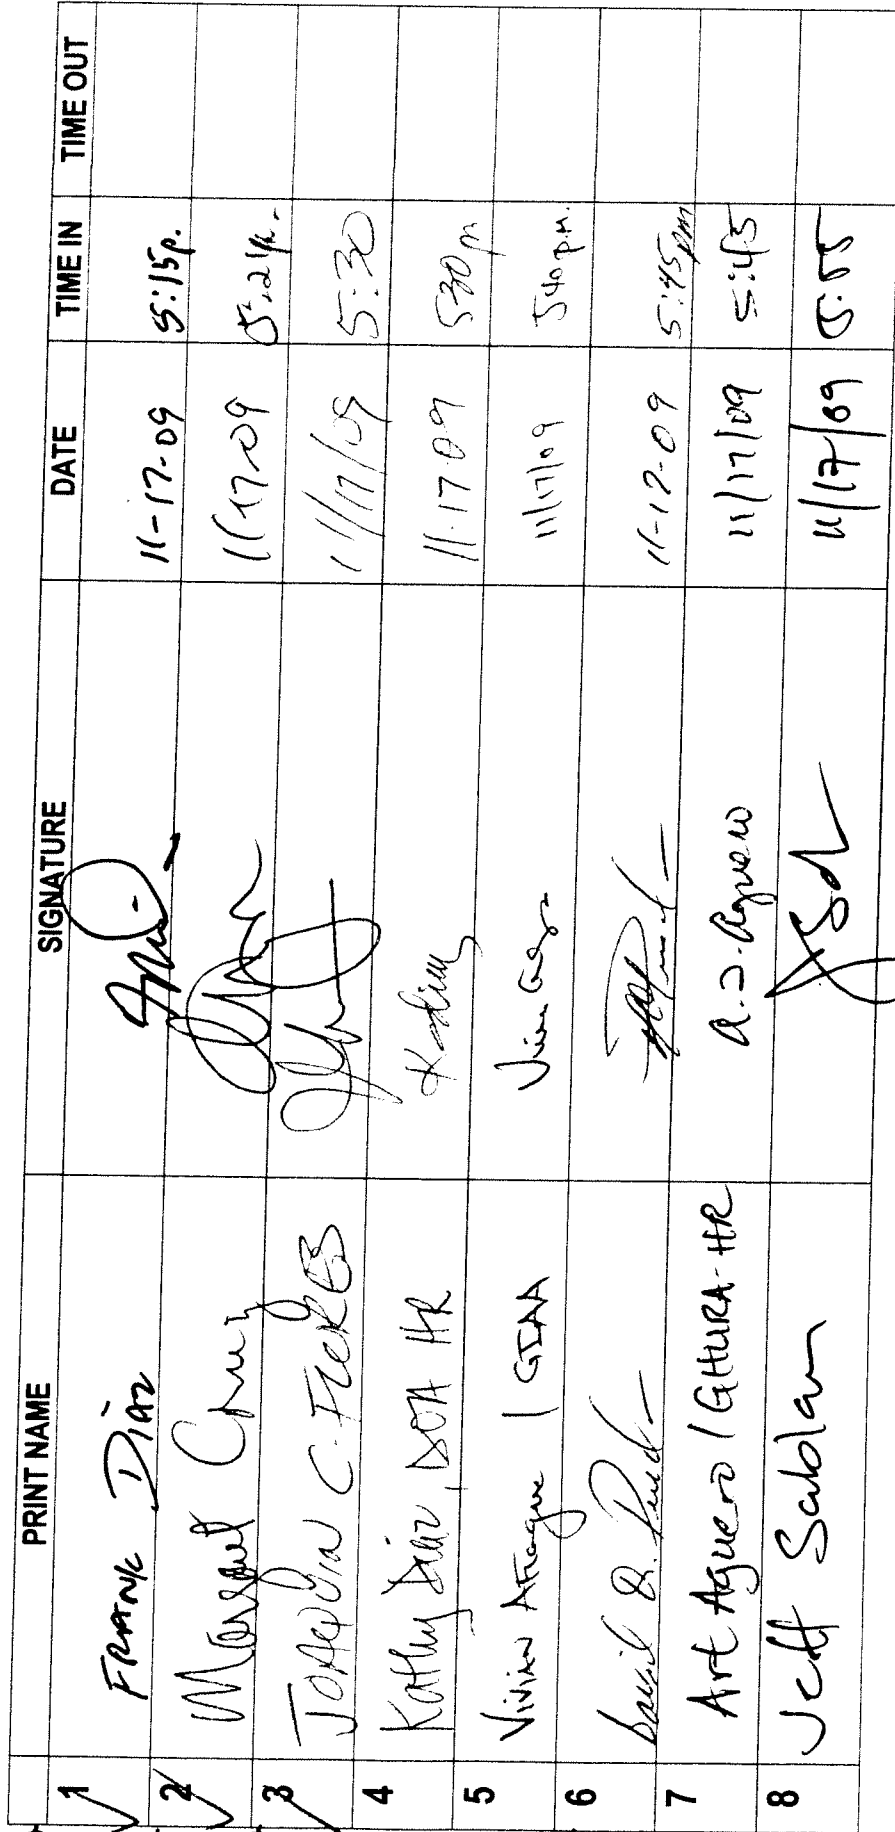 PRINT NAME SIGNATURE DATE TIME IN TIME OUT
1 FRANK DIAZ 11-17-09 5:15p.
2 11-17-09
3 JOAQUIN C. FLORES 11/17/09 5:30
4 Kathy Diaz, DOA HR 11-17-09 530 pm
5 Vivian | GIAA 11/17/09 540 p.m.
6 David 11-17-09 5:45pm
7 Art Aguero / GHURA-HR A.J. Aguero 11/17/09 5:45
8 Jeff Sablan 11/17/09 5:55